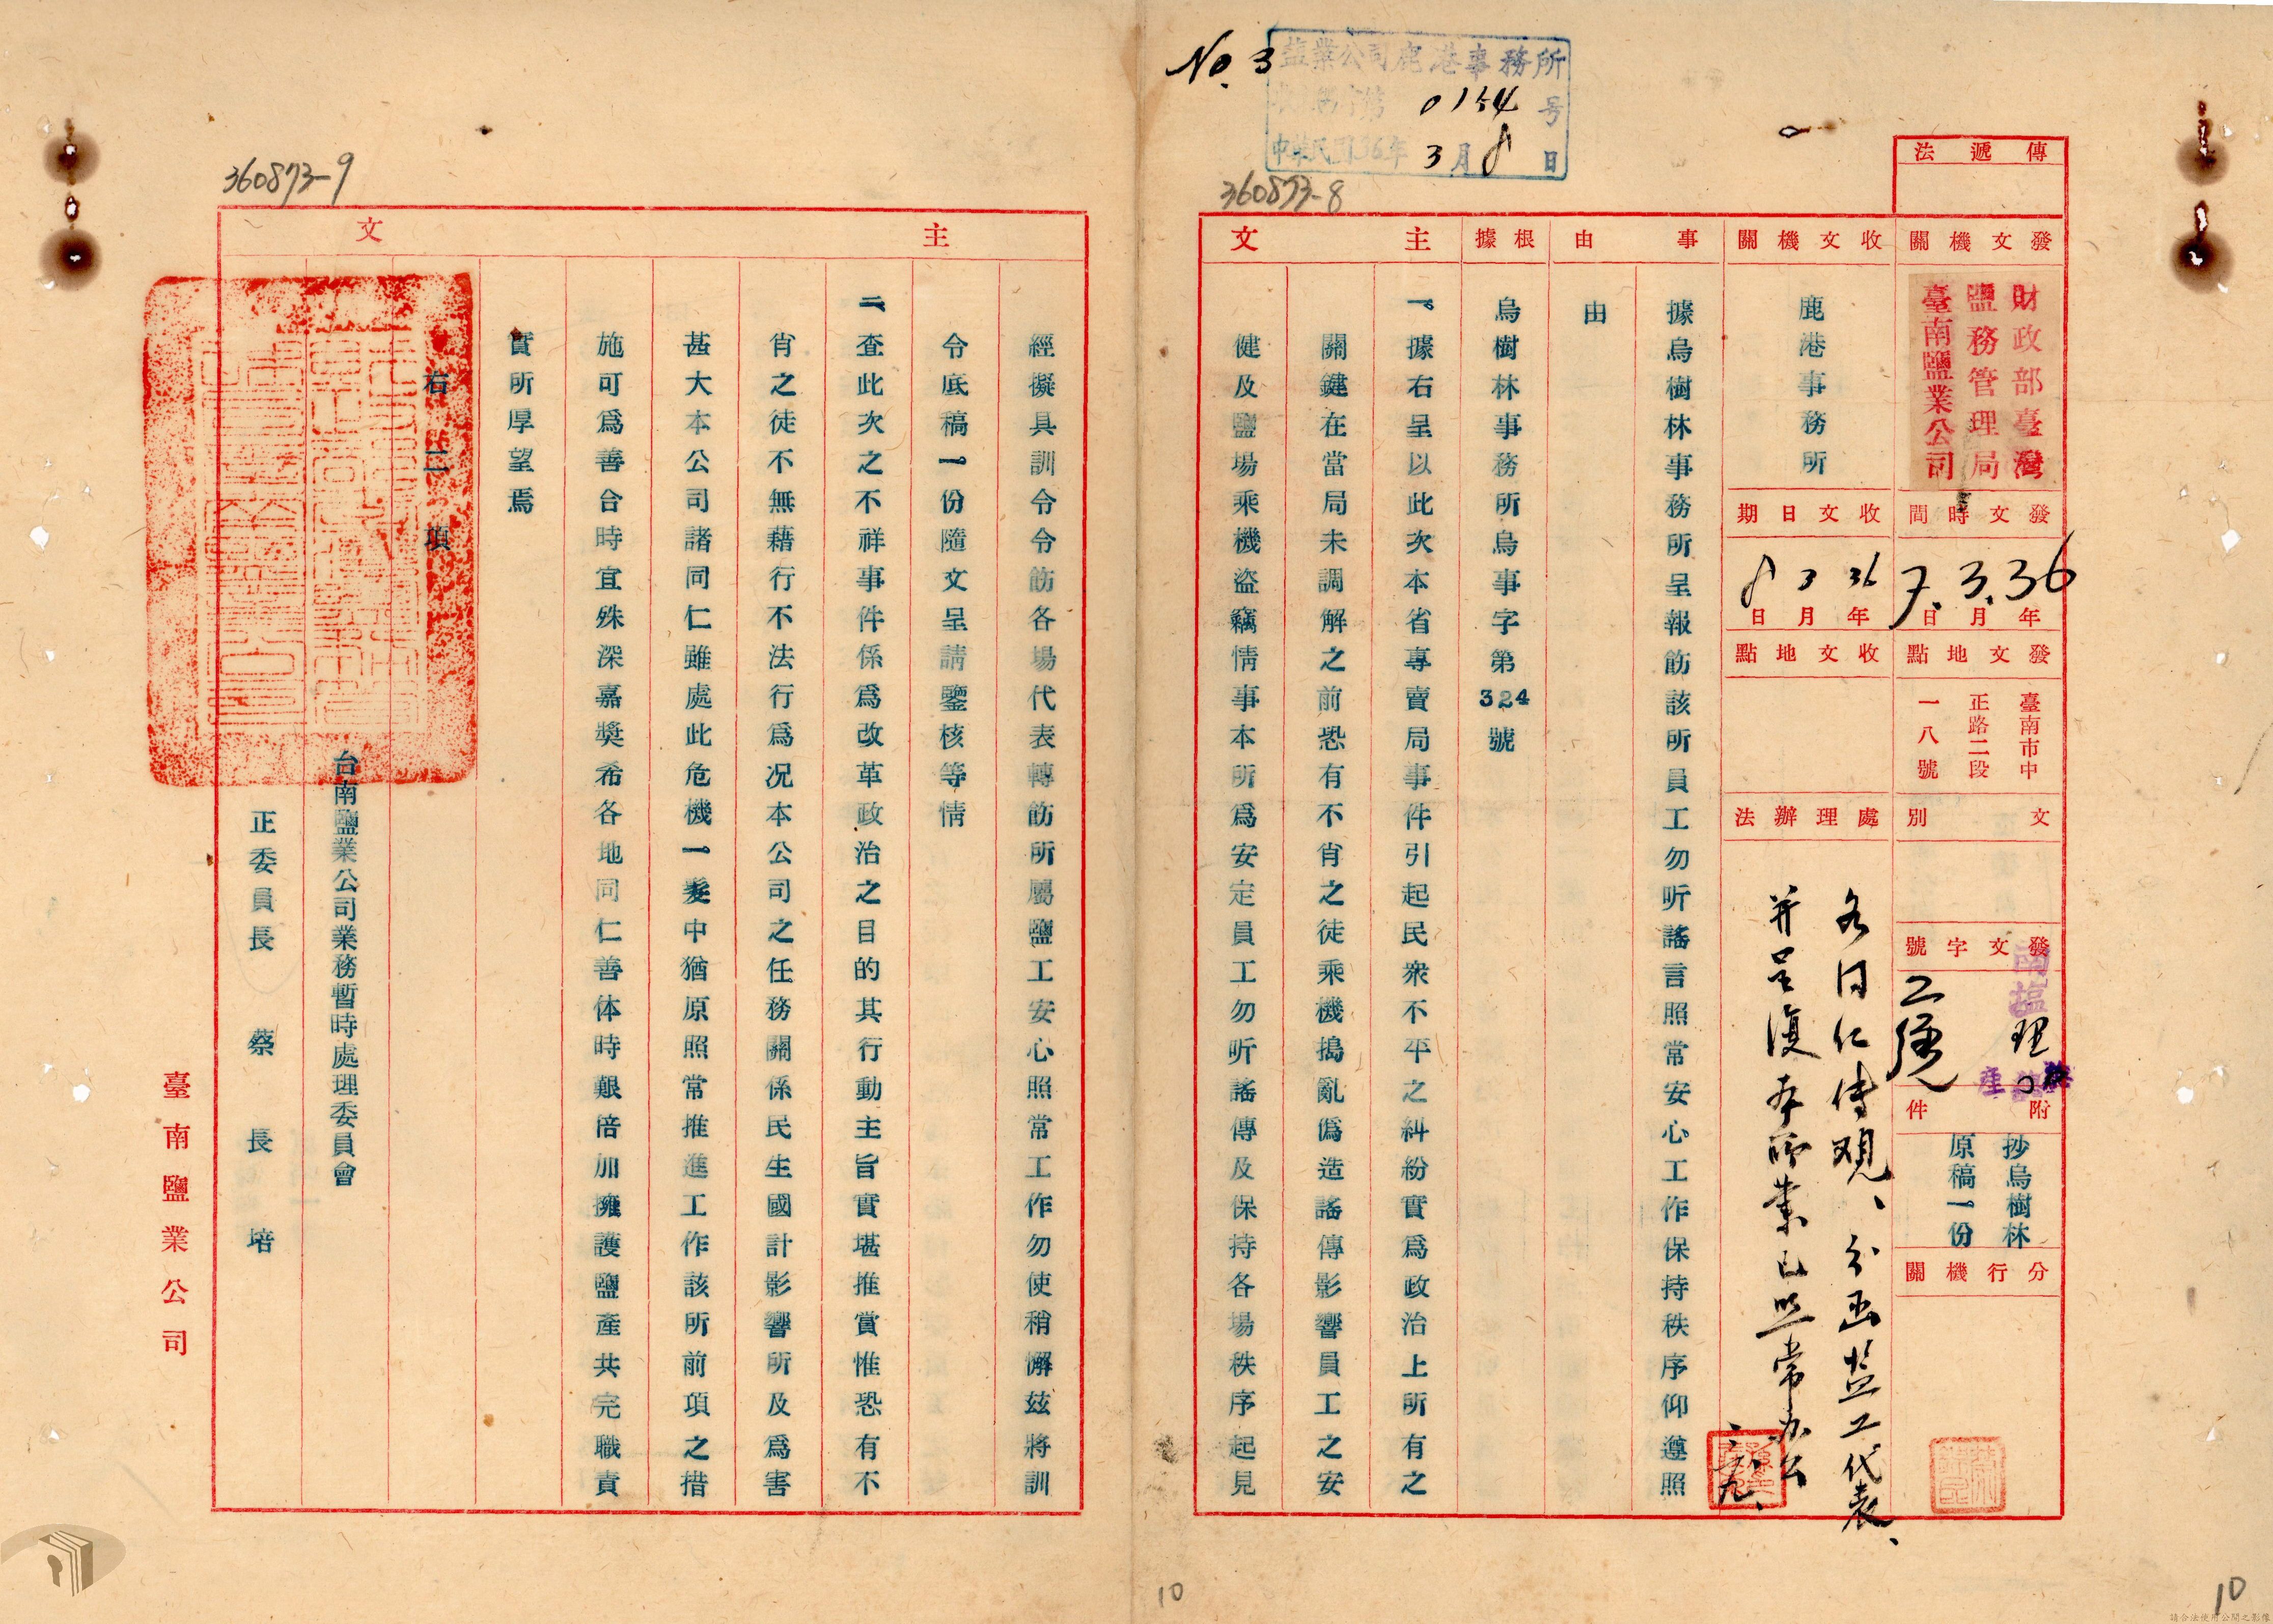 No. 3
鹽業公司鹿港事務所
0154号
中華民國36年3月8日
360873-8
傳遞法
發文機關
財政部臺灣
鹽務管理局
臺南鹽業公司
發文時間
36年3月7日
發文地點
臺南市中
正路二段
一八號
文別
發文字號
南鹽理
附件
抄烏樹林
原稿一份
分行機關
收文機關
鹿港事務所
收文日期
36年3月8日
收文地點
處理辦法
各同仁傳觀、分函盐工代表、
并呈復本所業已照常办公
事由
據烏樹林事務所呈報飭該所員工勿听謠言照常安心工作保持秩序仰遵照
由
根據
烏樹林事務所烏事字第324號
主文
一。據右呈以此次本省專賣局事件引起民衆不平之糾紛實爲政治上所有之
關鍵在當局未調解之前恐有不肖之徒乘機搗亂僞造謠傳影響員工之安
健及鹽場乘機盜竊情事本所爲安定員工勿听謠傳及保持各場秩序起見
10
360873-9
主文
經擬具訓令令飭各場代表轉飭所屬鹽工安心照常工作勿使稍懈玆將訓
令底稿一份隨文呈請鑒核等情
二、查此次之不祥事件係爲改革政治之目的其行動主旨實堪推賞惟恐有不
肖之徒不無藉行不法行爲况本公司之任務關係民生國計影響所及爲害
甚大本公司諸同仁雖處此危機一髮中猶原照常推進工作該所前項之措
施可爲善合時宜殊深嘉獎希各地同仁善体時艱倍加擁護鹽產共完職責
實所厚望焉
右二項
台南鹽業公司業務暫時處理委員會
正委員長 蔡長培
臺南鹽業公司
10
請合法使用公開之影像